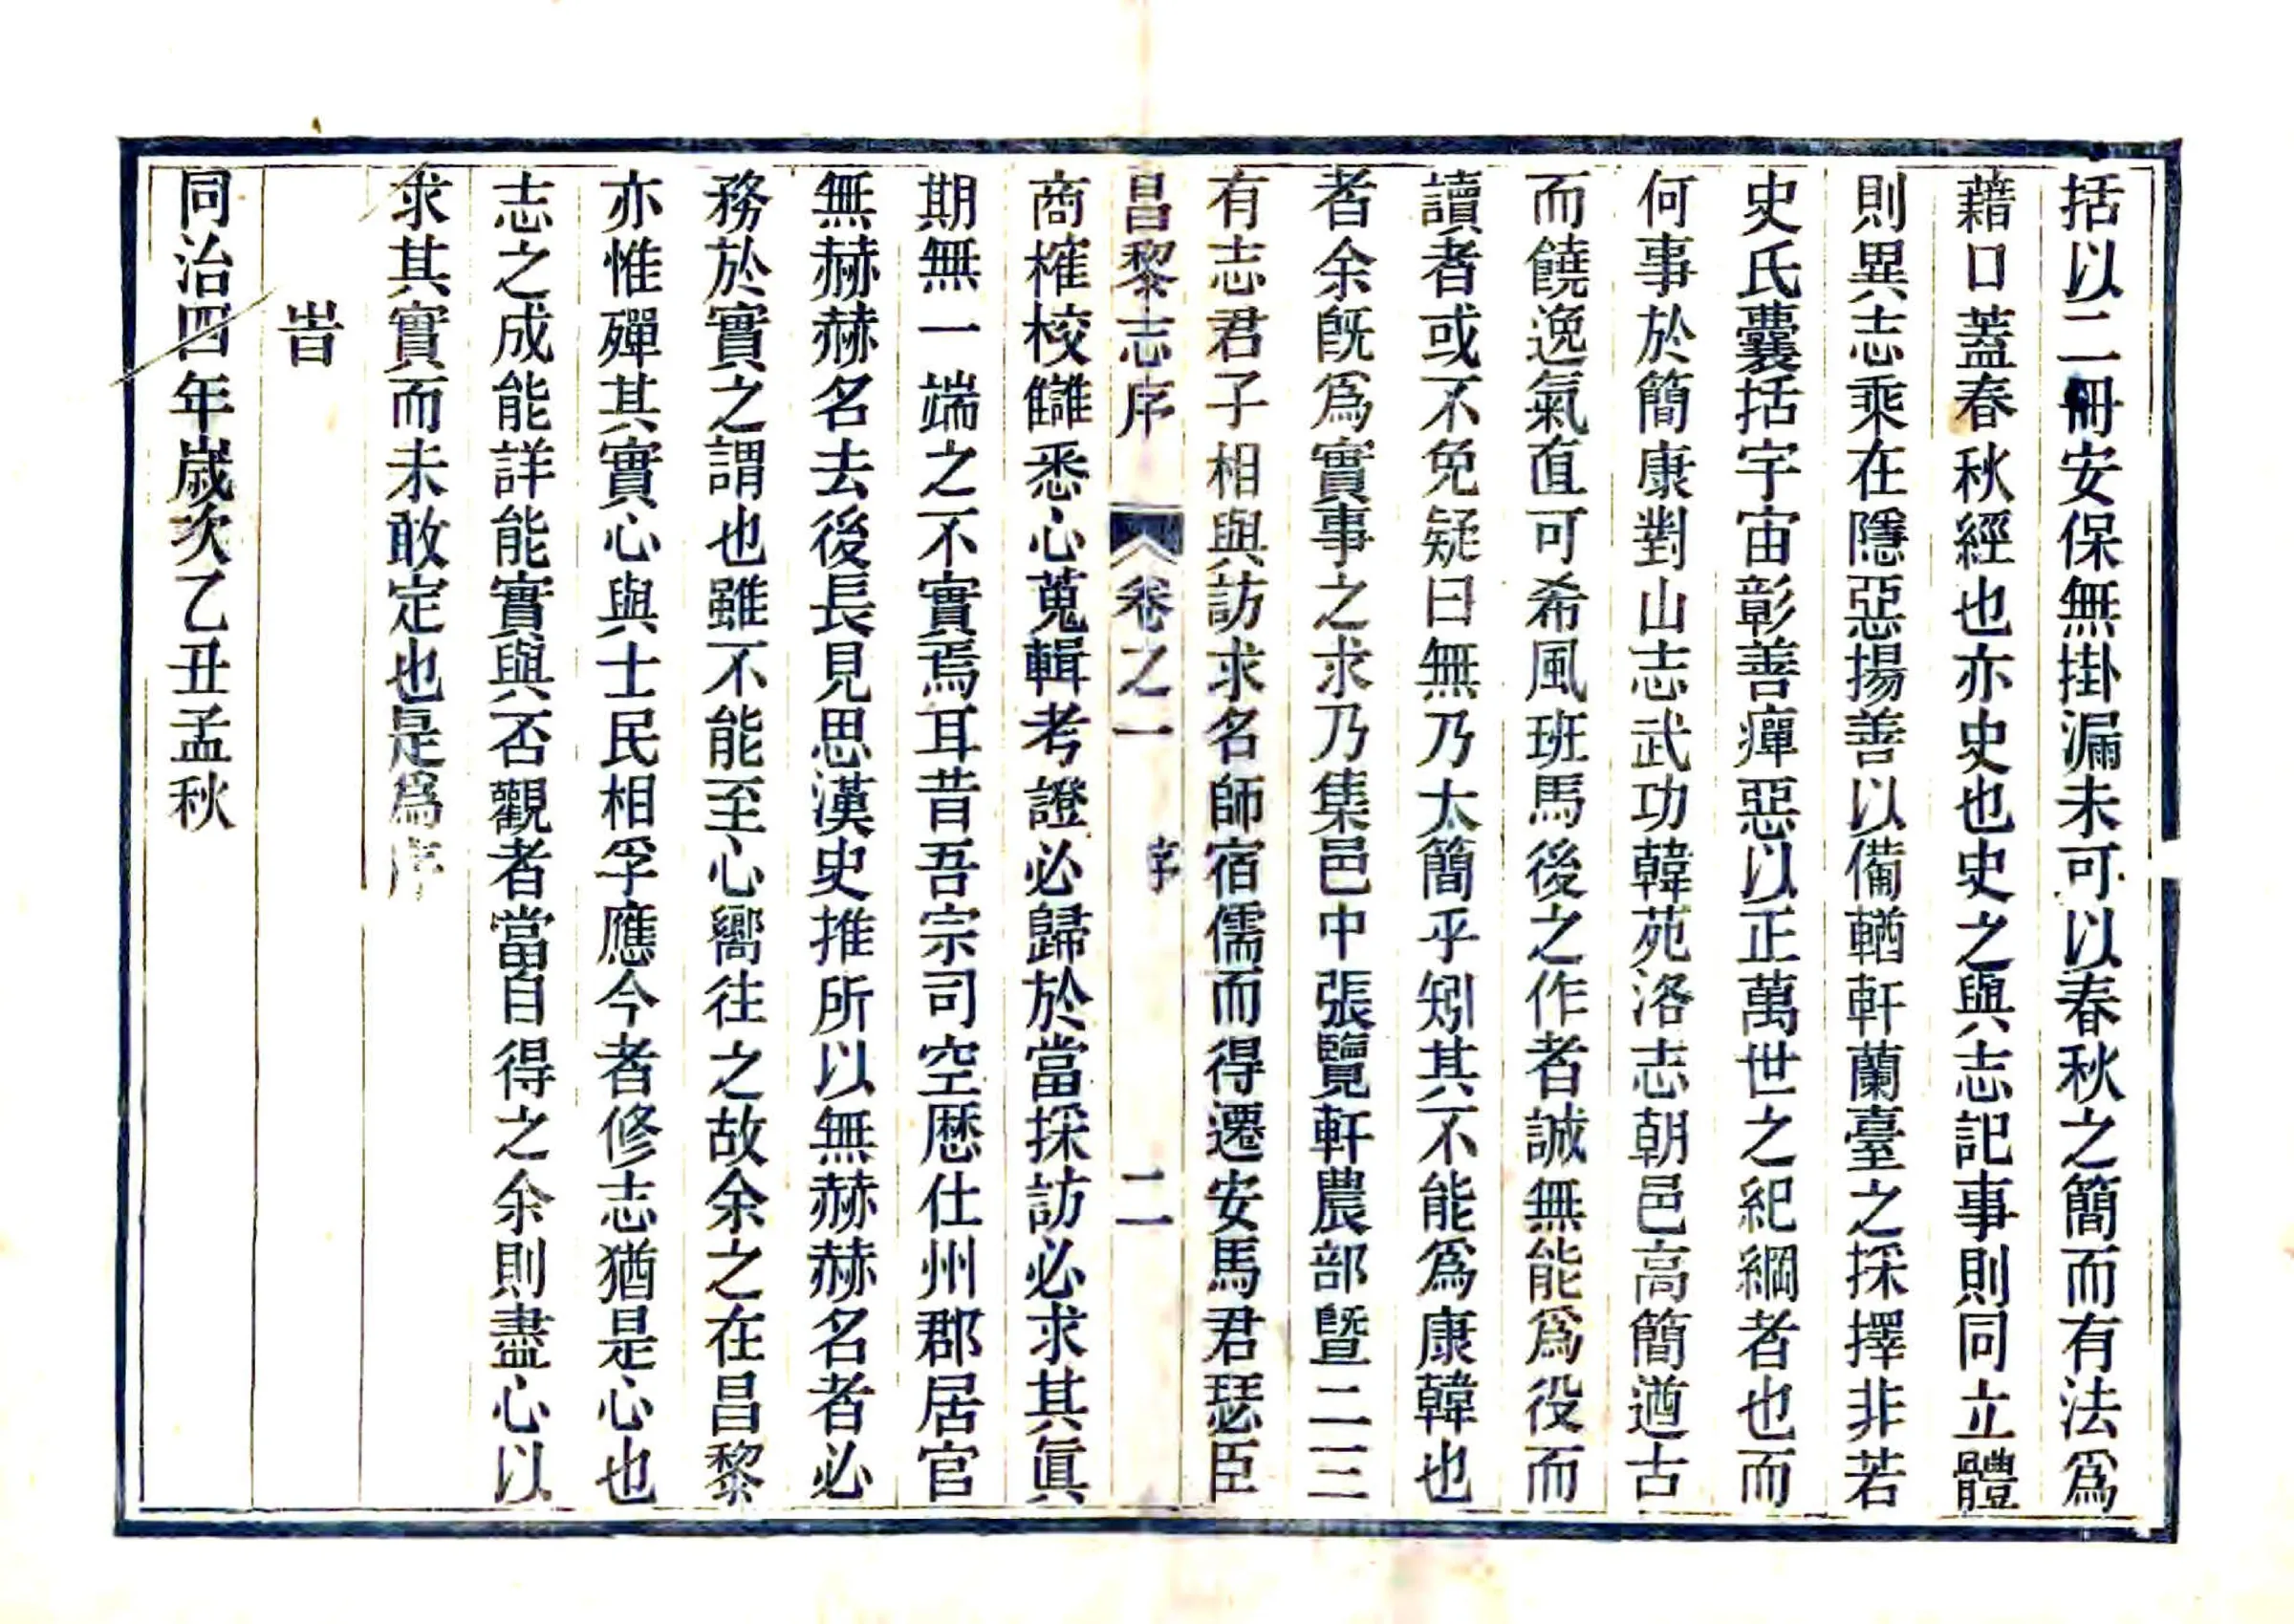 括以二冊安保無掛漏未可以春秋之簡而有法爲
藉口蓋春秋經也亦史也史之與志記事則同立體
則異志乘在隱惡揚善以備輶軒蘭臺之採擇非若
史氏囊括宇宙彰善癉惡以正萬世之紀綱者也而
何事於簡康對山志武功韓苑洛志朝邑高簡遒古
而饒逸氣直可希風班馬後之作者誠無能爲役而
讀者或不免疑曰無乃太簡乎矧其不能爲康韓也
者余旣爲實事之求乃集邑中張覽軒農部暨二三
有志君子相與訪求名師宿儒而得遷安馬君瑟臣
昌黎志序 卷之一 序 二
商榷校讎悉心蒐輯考證必歸於當採訪必求其眞
期無一端之不實焉耳昔吾宗司空歷仕州郡居官
無赫赫名去後長見思漢史推所以無赫赫名者必
務於實之謂也雖不能至心嚮往之故余之在昌黎
亦惟殫其實心與士民相孚應今者修志猶是心也
志之成能詳能實與否觀者當自得之余則盡心以
求其實而未敢定也是爲序
旹
同治四年歲次乙丑孟秋